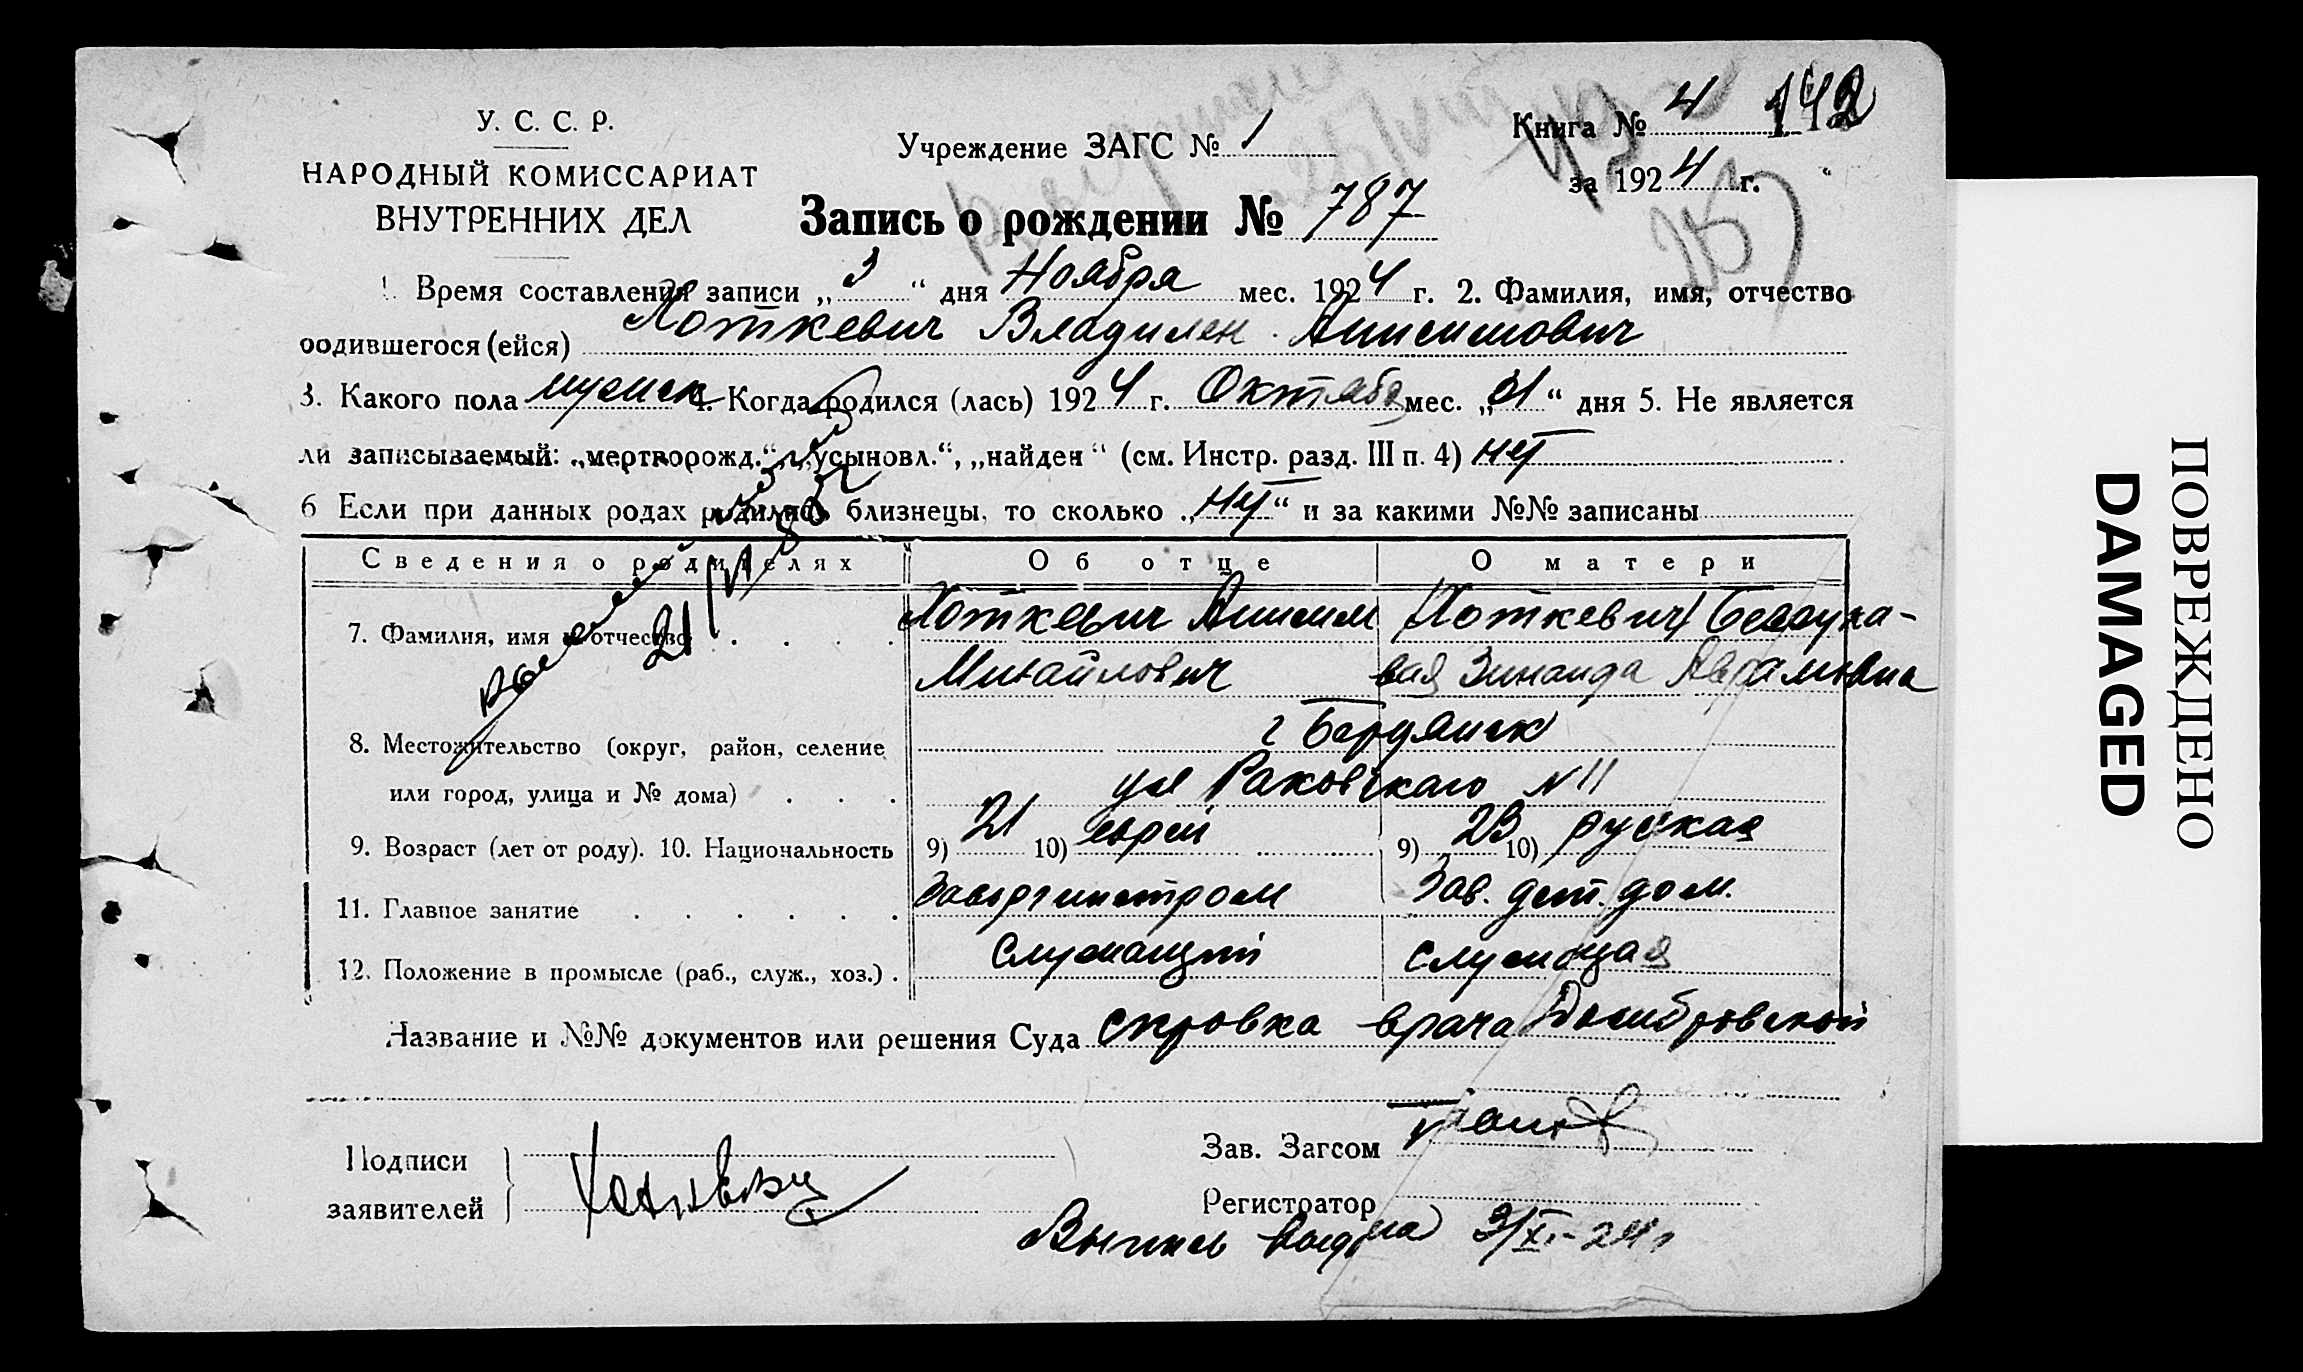 У. С. С. Р.
НАРОДНЫЙ КОМИССАРИАТ
ВНУТРЕННИХ ДЕЛ
Учреждение ЗАГС № 1
Книга № 4 142
за 1924 г.
Запись о рождении № 787
1. Время составления записи „3“ дня Ноября мес. 1924 г. 2. Фамилия, имя, отчество
родившегося (ейся) Хоткевич Владилен Анисимович
3. Какого пола мужск 4. Когда родился (лась) 1924 г. Октября мес. „31“ дня 5. Не является
ли записываемый: „мертворожд.“, „усыновл.“, „найден“ (см. Инстр. разд. III п. 4) нет
6 Если при данных родах родились близнецы, то сколько „нет“ и за какими №№ записаны
Сведения о родителях Об отце О матери
7. Фамилия, имя и отчество Хоткевич Анисим Хоткевич Белоуса-
Михайлович вая Зинаида Аврамовна
8. Местожительство (округ, район, селение г Бердянск
или город, улица и № дома) ул Раковскаго № 11
9. Возраст (лет от роду). 10. Национальность 9) 21 10) еврей 9) 23 10) русская
11. Главное занятие Заворгинстром Зав. дет. дом.
12. Положение в промысле (раб., служ., хоз.) служащий служащая
Название и №№ документов или решения Суда справка врача Домбровской
Подписи
заявителей
Зав. Загсом
Регистратор
Выпись выдана 3/XI-24 г
ПОВРЕЖДЕНО
DAMAGED